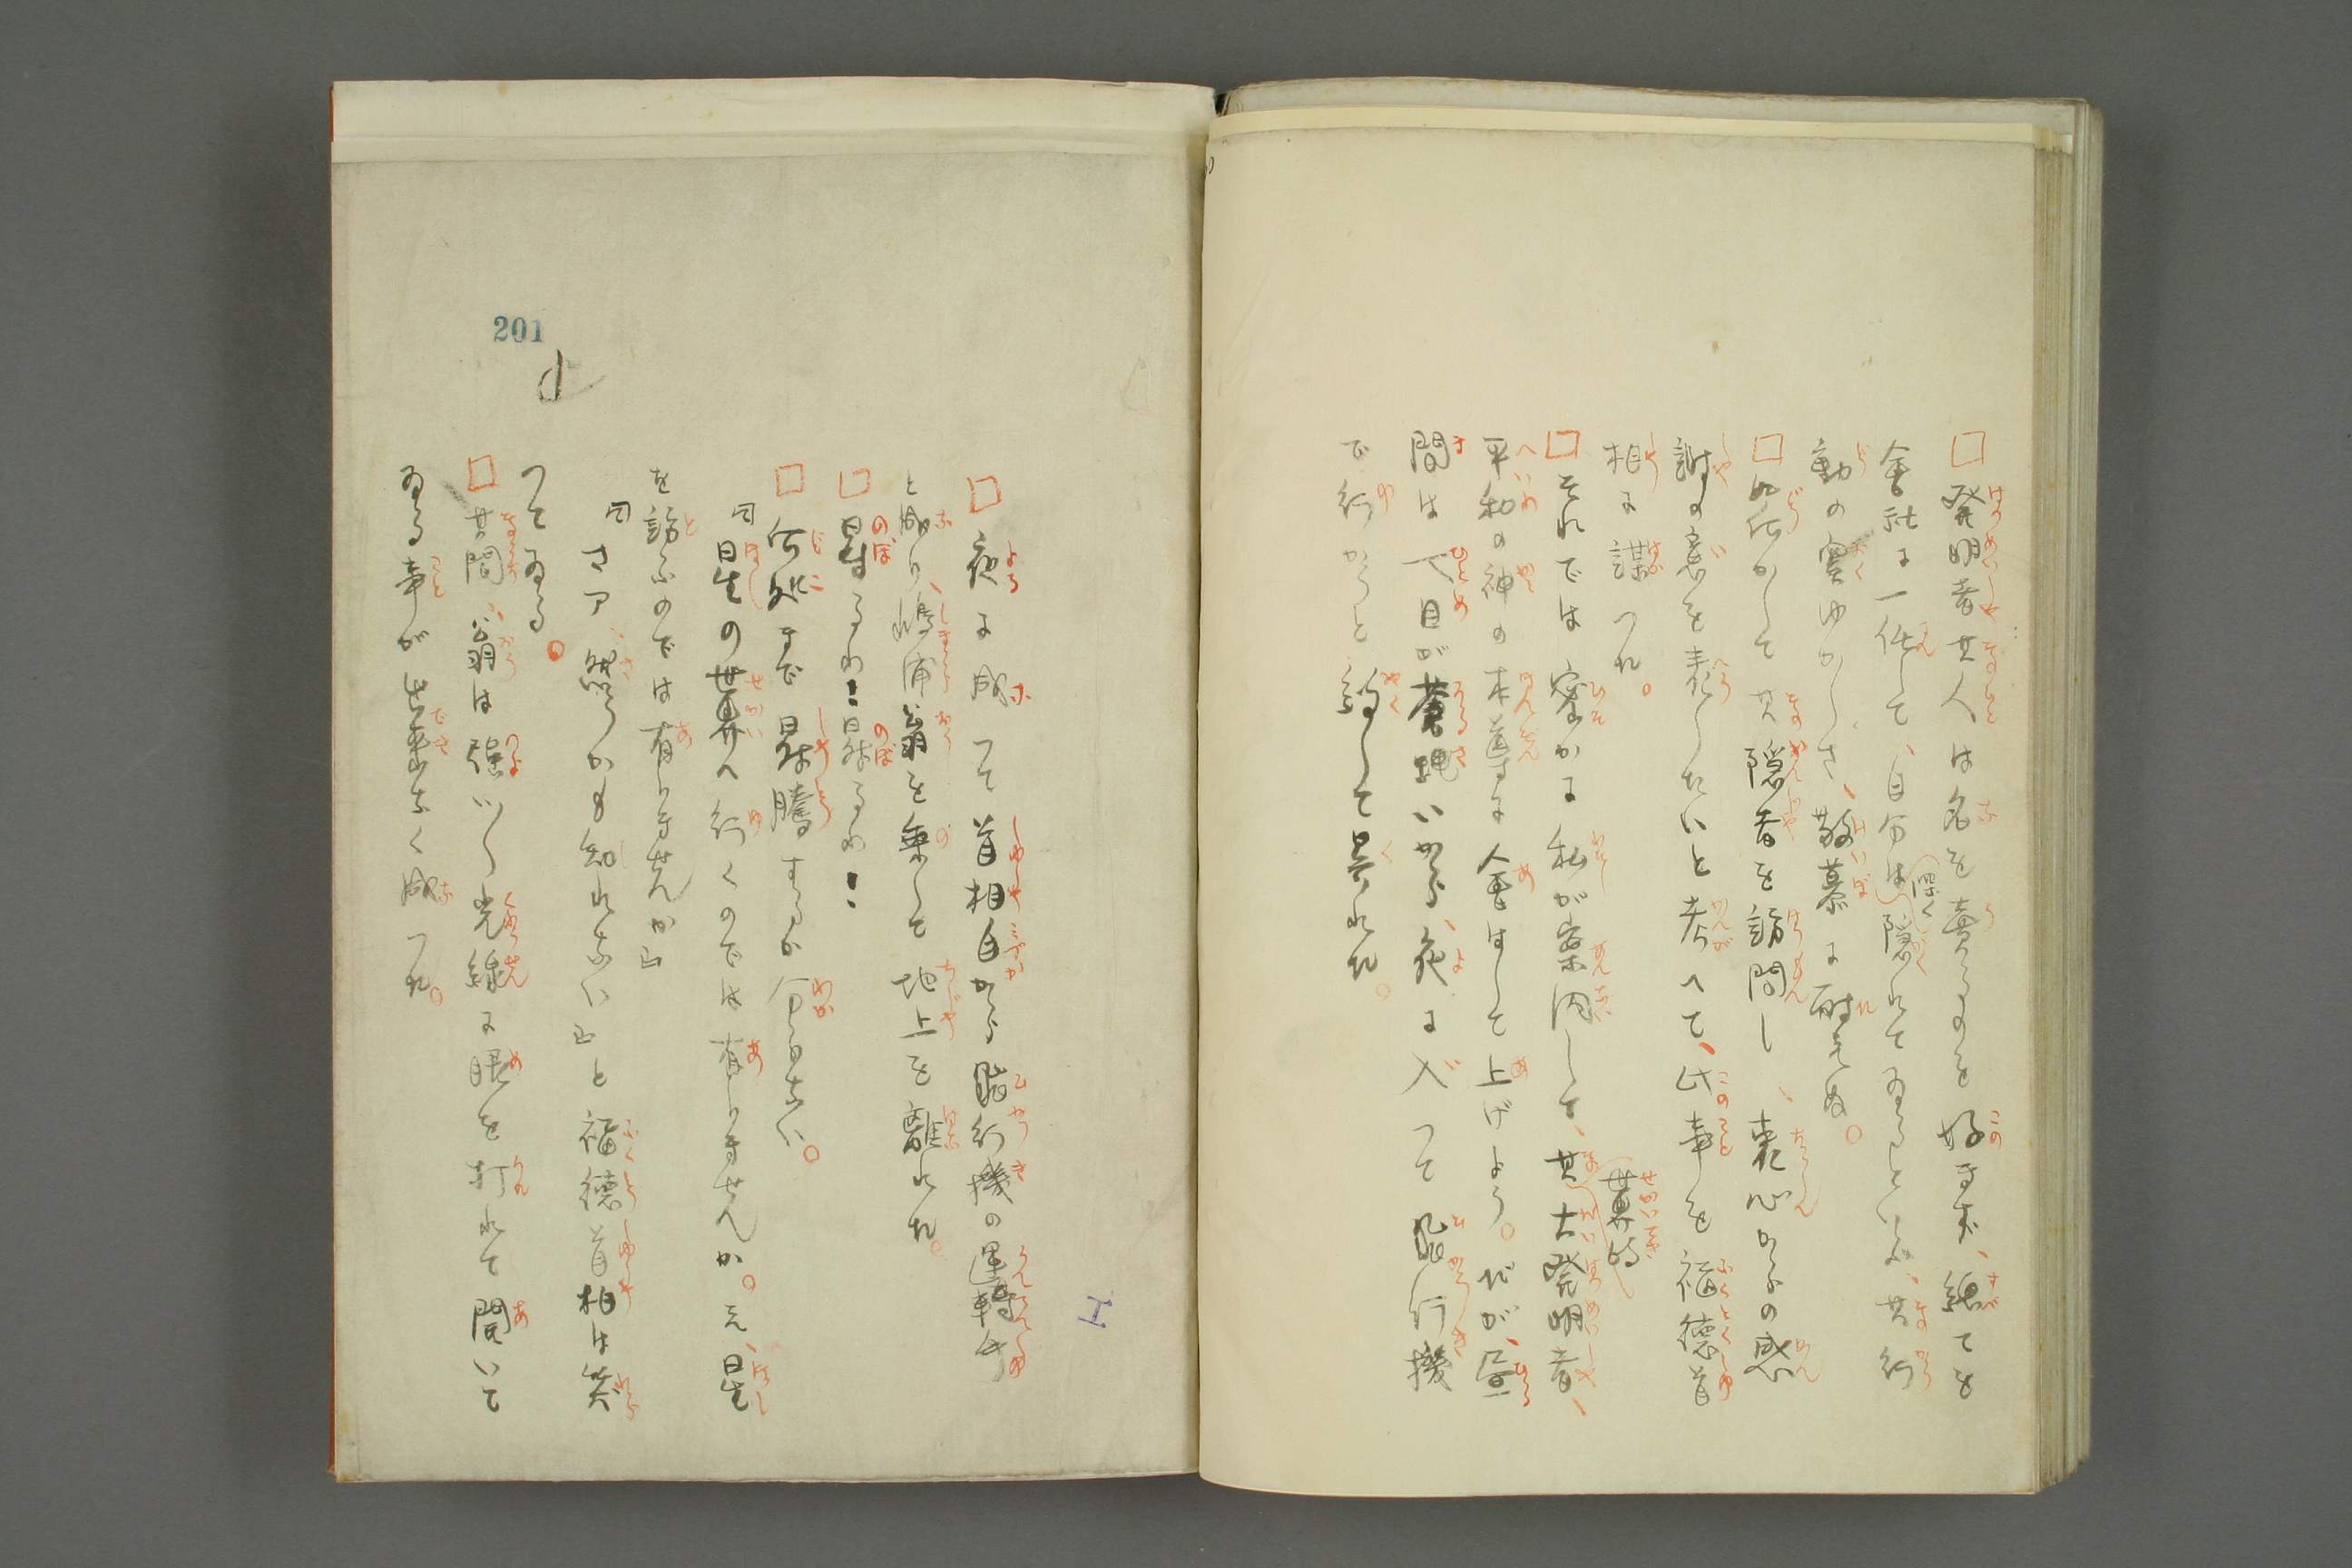 □発明者其人は名を売るのを好まず、総てを
会社に一任して、自分は深く隠れてゐるといふ、其行
動の奥ゆかしさ、敬慕に耐えぬ。
□如何かして其隠者を訪問し、衷心からの感
謝の意を表したいと考へて、此事を福徳首
相に謀つた。
□それでは密かに私が案内して、其世界的大発明者、
平和の神の本尊に会はして上げよう。だが、昼
間は人目が蒼蝿いから、夜に入つて飛行機
で行かうと約して呉れた。
□夜に成つて首相自から飛行機の運転手
と成り、嶋浦翁を乗して地上を離れた。
□昇るわ!昇るわ!
□何処まで昇騰するか分らない。
『星の世界へ行くのでは有りませんか。え、星
を訪ふのでは有りませんか』
『さア、然うかも知れない』と福徳首相は笑
つてゐる。
□其間、翁は強いく光線に眼を打れて開いて
ゐる事が出来なく成つた。
201